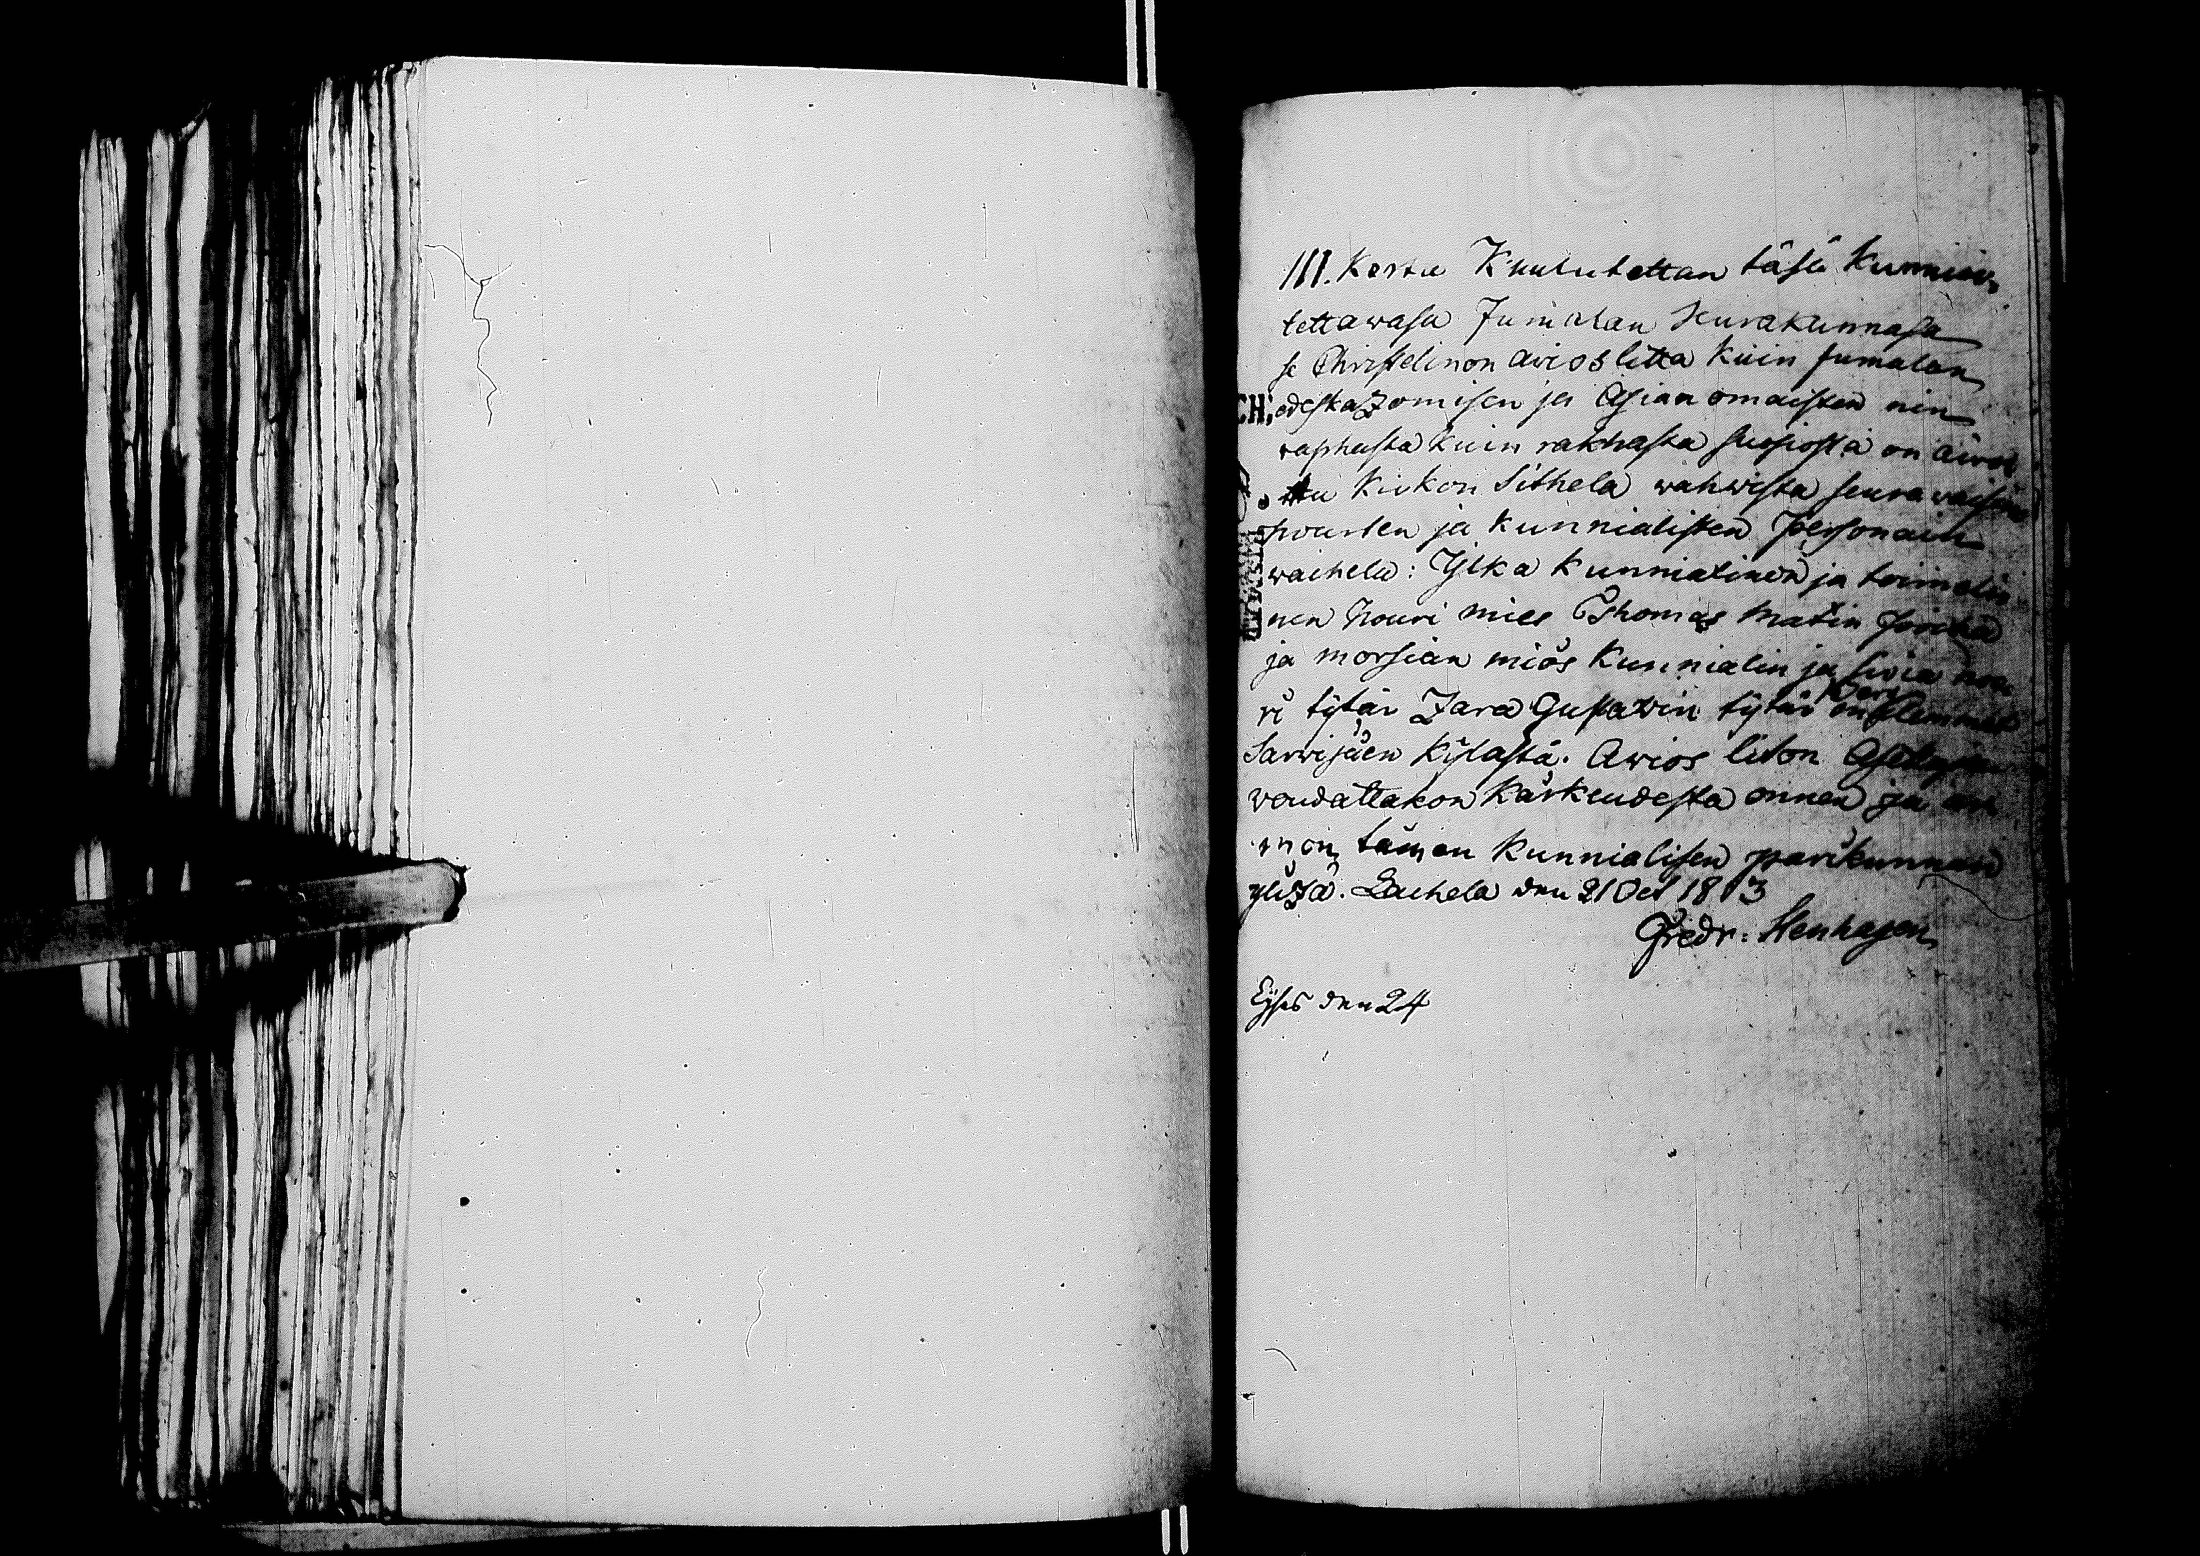 III. Kerta Kuulutettan täsä Kunnioi,
tettawasa Jumalan Seurakunnasa
se Christelinen avios litta kuin Jumalan
edeskazomisen ja Asian omaisten nin
vaphasta kuin rakhasta suosiosta on aivoi
ttu Kirkon Sithela vahwista seurawaisten
nourten ja kunnialisten Personain
waihela: Ylka kunnialinen ja toimelii
nen Nouri mies Thomas Matin
ja morsian miös Kunnialin ja sivia nou
ri tytär Zara Gustavin tytär
Sarwijäen Kylästä. Avios liton
voudattakon Kärkeudesta onnen ja
mon tämen Kunnialisen parikunnan
ylizä. Laihela den 21 Oct 1813
Fredr: Stenhagen
Lyses den 24